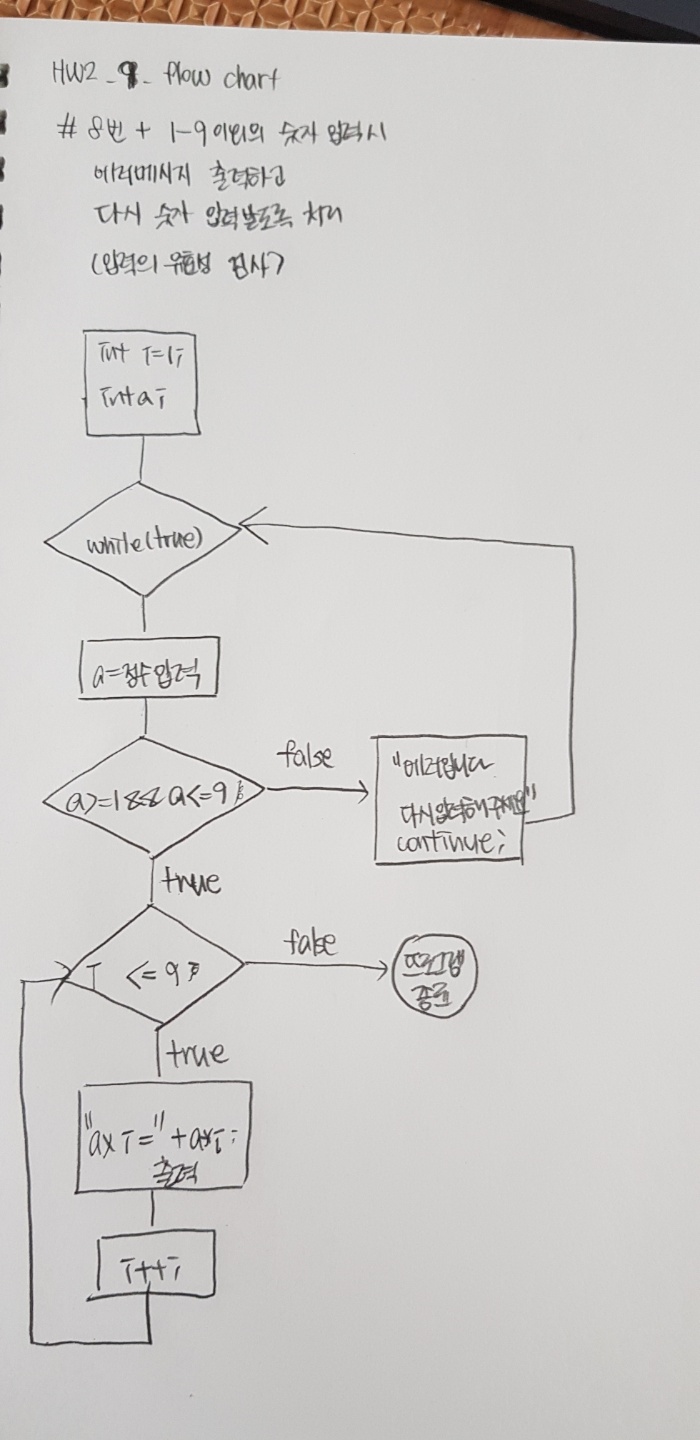 HW2_9_ flow chart
# 8번 + 1~9 이외의 숫자 입력시
에러메시지 출력하고
다시 숫자 입력받도록 처리
(입력의 유효성 검사)
int i=1;
int a;
while(true)
a=정수입력
false
"에러입니다
a>=1&&a<=9
다시입력해주세요"
continue;
true
false
i <=9
프로그램
종료
true
"a x i =" + a*i;
출력
i++;